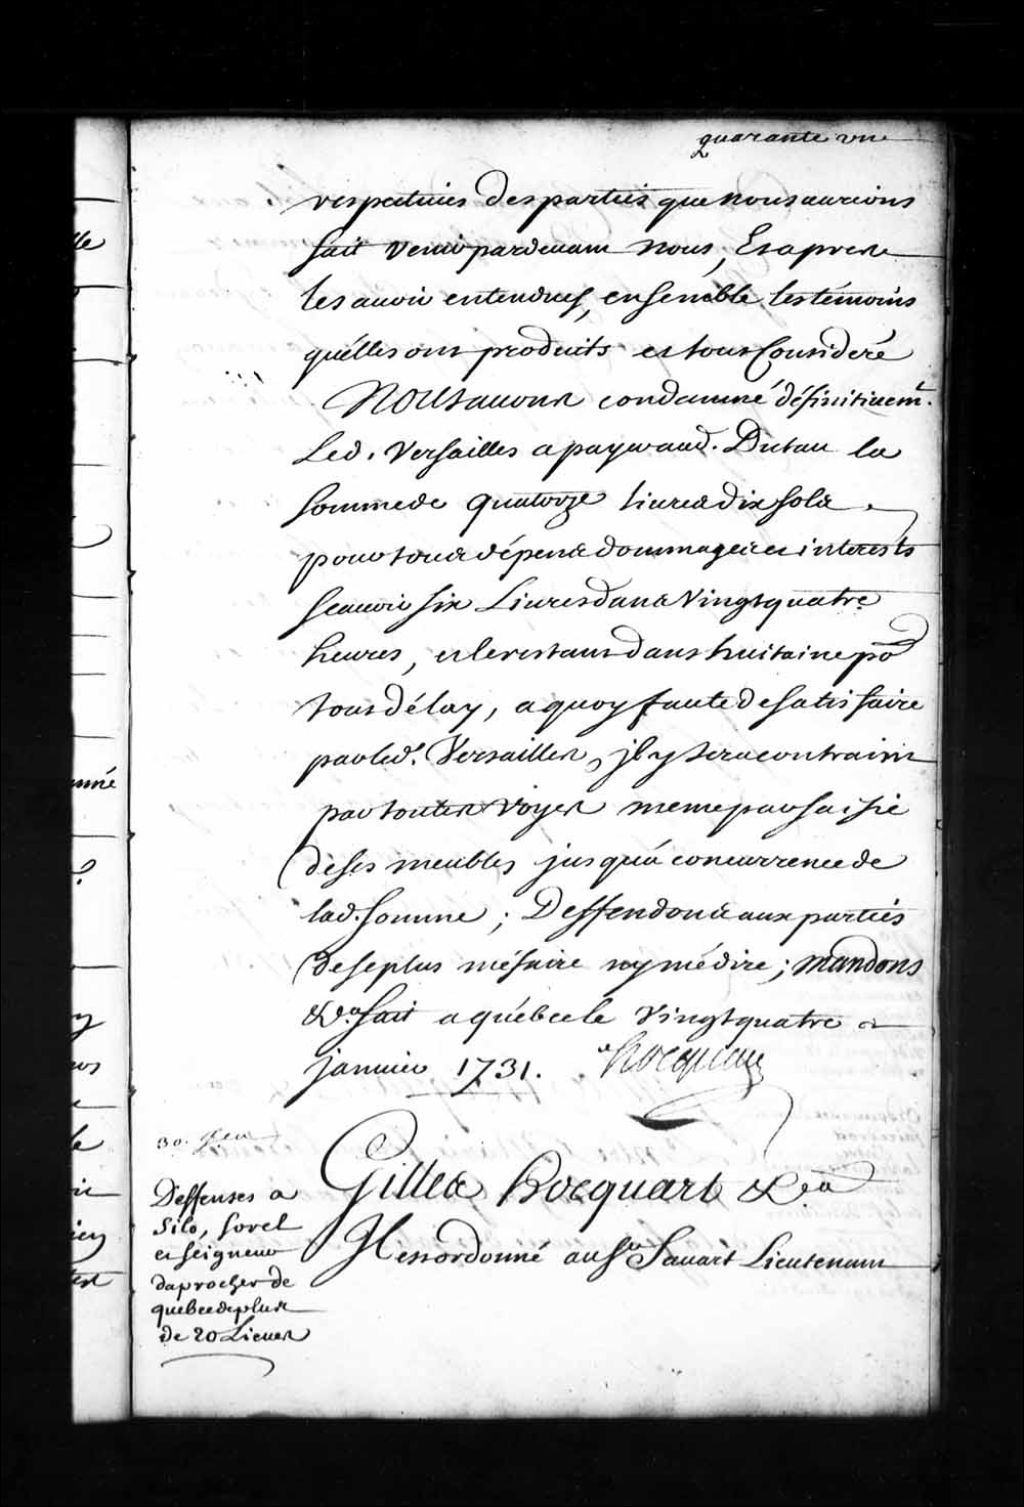 quarante un
respectives des parties que nous aurions
fait venir pardevant nous, Et apres
les avoir entendues, ensemble les témoins
qu'elles ont produits et tout Consideré
Nous avons condamné définitivemt.
Led. Versailles a payer aud. Dutau la
somme de quatorze livres dix sols
pour tous dépens dommages et interests
scavoir six Livres dans Vingt quatre
heures, et le restant dans huitaine po.
tout délay, a quoy faute de satisfaire
par led. Versailles, jl y sera contraint
par toutes voyes meme par saisie
de ses meubles jusqu'à concurrence de
lad. somme; Deffendons aux parties
de se plus mésaire ny médire; mandons
&a. fait a québec le Vingt quatre
janvier 1731. Hocquart
30. Jer.
Deffenses a
Silo, sorel
et seigneur
daprocher de
quebec de plus
de 20 Lieues
Gilles hocquart &ca
Il est ordonné au Sr. Savart Lieutenant